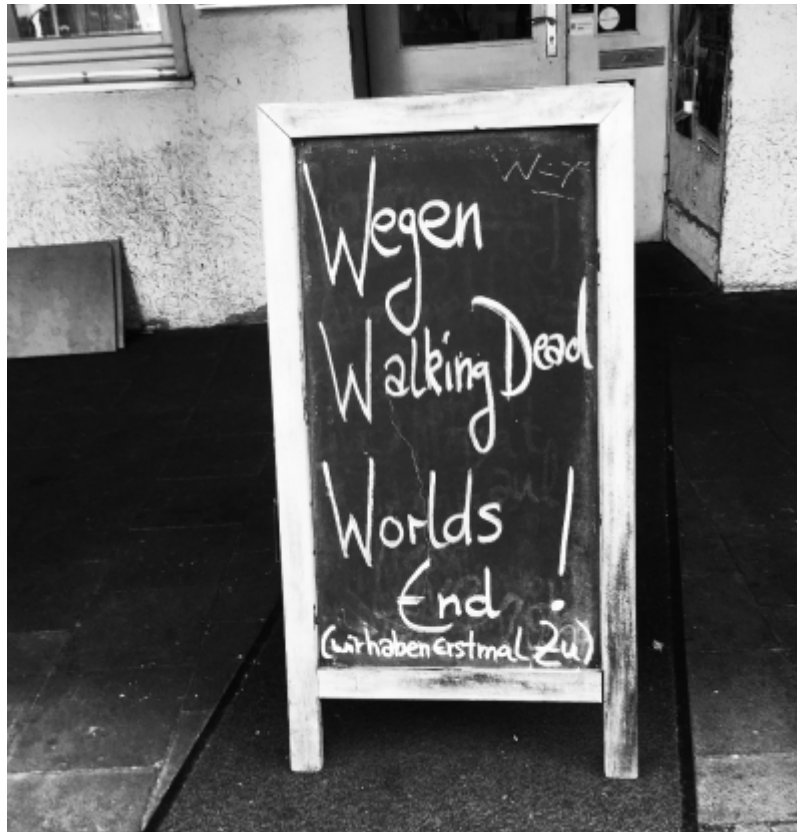 Wegen
Walking Dead
Worlds
End !
(wir haben erstmal Zu)